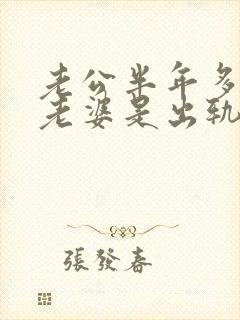 老公半年多
老婆是出轨
張發春